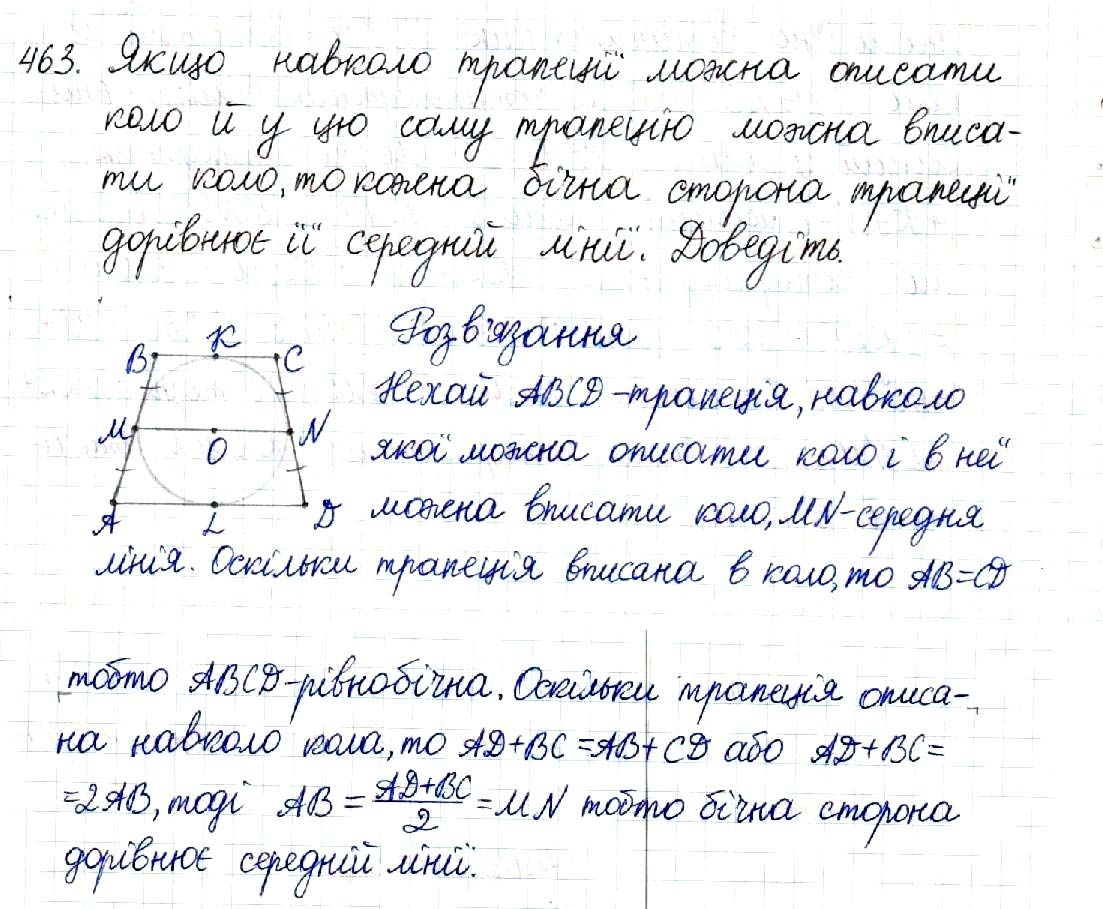 463. Якщо навколо трапеції можна описати
коло й у цю саму трапецію можна вписа-
ти коло, то кожна бічна сторона трапеції
дорівнює її середній лінії. Доведіть.
Розв'язання
B K C
Нехай ABCD - трапеція, навколо
M O N
якої можна описати коло і в неї
A L D
можна вписати коло, MN - середня
лінія. Оскільки трапеція вписана в коло, то AB = CD
тобто ABCD - рівнобічна. Оскільки трапеція описа-
на навколо кола, то AD + BC = AB + CD або AD + BC =
= 2AB, тоді AB = \frac{AD+BC}{2} = MN тобто бічна сторона
дорівнює середній лінії.